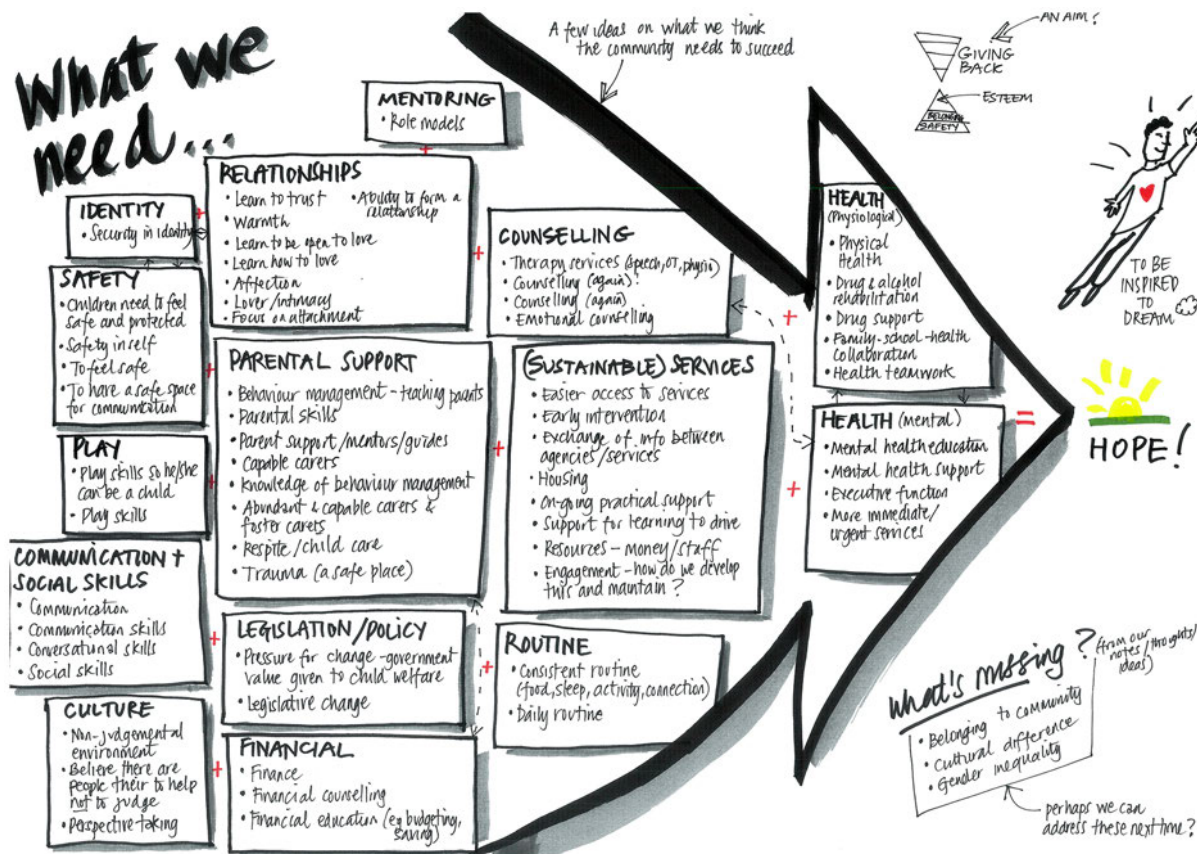 What we
need...
A few ideas on what we think
the community needs to succeed
AN AIM?
GIVING
BACK
ESTEEM
BELONGING
SAFETY
MENTORING
• Role models
RELATIONSHIPS
• Learn to trust
• Ability to form a
relationship
• Warmth
• Learn to be open to love
• Learn how to love
• Affection
• Lover/intimacy
• Focus on attachment
IDENTITY
• Security in identity
SAFETY
• Children need to feel
safe and protected
• Safety in self
• To feel safe
• To have a safe space
for communication
PLAY
• Play skills so he/she
can be a child
• Play skills
COMMUNICATION +
SOCIAL SKILLS
• Communication
• Communication skills
• Conversational skills
• Social skills
CULTURE
• Non-judgemental
environment
• Believe there are
people their to help
not to judge
• Perspective taking
PARENTAL SUPPORT
• Behaviour management - teaching parents
• Parental skills
• Parent support/mentors/guides
• Capable carers
• Knowledge of behaviour management
• Abundant & capable carers &
foster carers
• Respite/child care
• Trauma (a safe place)
LEGISLATION/POLICY
• Pressure for change - government
value given to child welfare
• Legislative change
FINANCIAL
• Finance
• Financial counselling
• Financial education (eg budgeting,
saving)
COUNSELLING
• Therapy services (speech, OT, physio)
• Counselling (again)!
• Counselling (again)
• Emotional counselling
(SUSTAINABLE) SERVICES
• Easier access to services
• Early intervention
• Exchange of info between
agencies/services
• Housing
• On-going practical support
• Support for learning to drive
• Resources - money/staff
• Engagement - how do we develop
this and maintain?
ROUTINE
• Consistent routine
(food, sleep, activity, connection)
• Daily routine
HEALTH
(Physiological)
• Physical
Health
• Drug & alcohol
rehabilitation
• Drug support
• Family-school-health
collaboration
• Health teamwork
HEALTH (mental)
• Mental health education
• Mental health support
• Executive function
• More immediate/
urgent services
=
TO BE
INSPIRED
TO
DREAM
HOPE!
What's missing?
(from our
notes/thoughts/
ideas)
• Belonging to community
• Cultural difference
• Gender inequality
perhaps we can
address these next time?